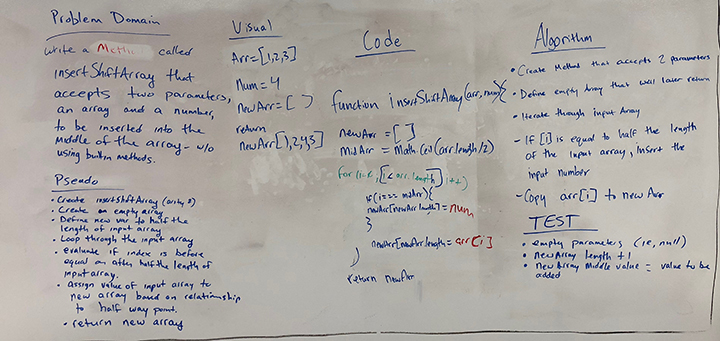 Problem Domain
write a Meth called
insertShiftArray that
accepts two parameters,
an array and a number,
to be inserted into the
Middle of the array - w/o
using builtin methods.
Pseudo
• Create insertShiftArray
• Create an empty array
• Define new var to half the
length of input array
• Loop through the input array
• evaluate if index is before
equal on after half the length of
input array.
• assign value of input array to
new array based on relationship
to half way point.
• return new array
Visual
Arr=[1,2,3]
Num=4
newArr=[ ]
return
newArr[1,2,4,3]
Code
function insertShiftArray(arr, num){
newArr = [ ]
midArr = Math.Ceil(arr.length/2)
for(i=0, i<arr.length, i++)
if(i=== midArr){
newArr[newArr.length]=num
}
newArr[newArr.length=arr[i]
}
return newArr
Algorithm
• Create Method that accepts 2 parameters
• Define empty Array that will later return
• Iterate through input Array
- If [i] is equal to half the length
of the input array, insert the
input number
- Copy arr[i] to new Arr
TEST
• empty parameters (ie, null)
• newArray length +1
• new Array Middle value = value to be
added